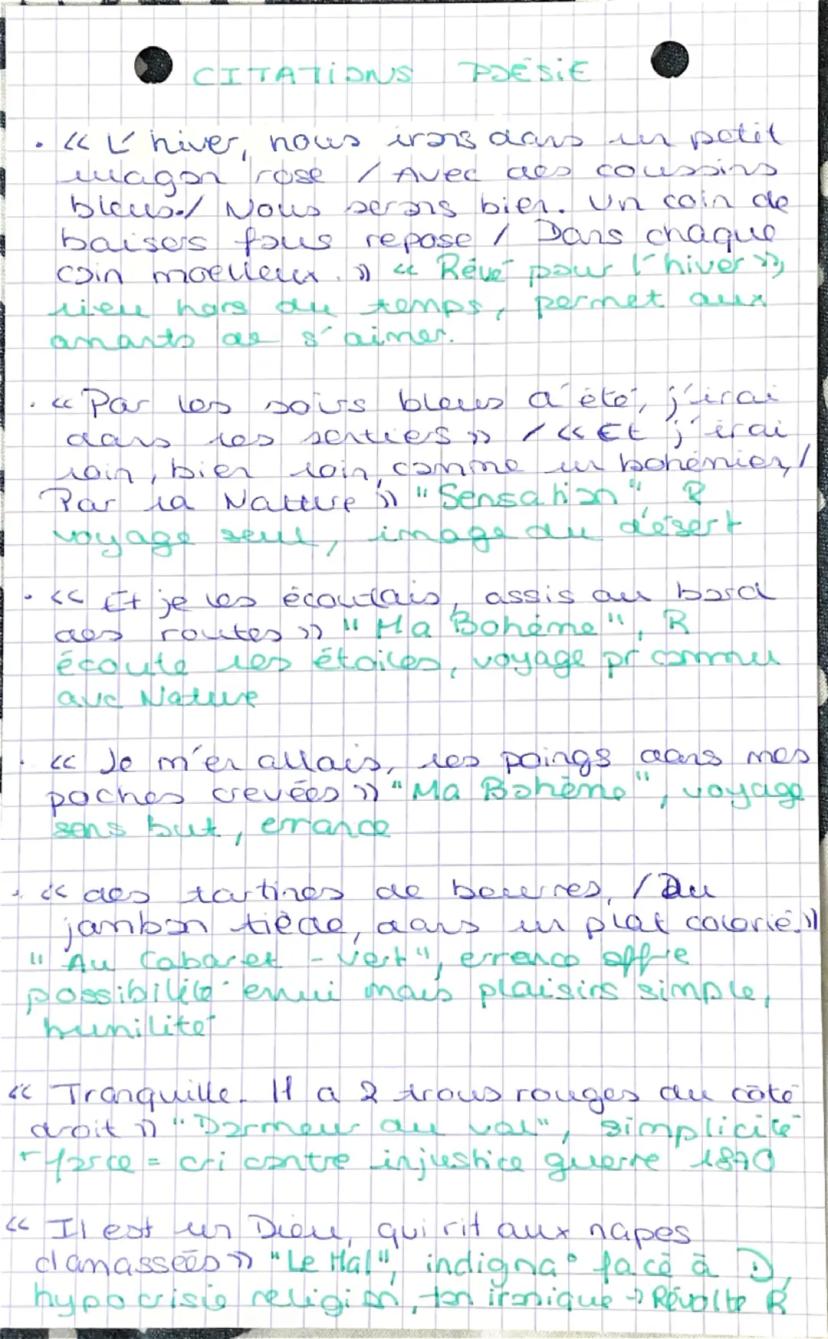 CITATIONS POÉSIE
• « L'hiver, nous irons dans un petit
wagon rose / Avec des coussins
bleus. / Nous serons bien. Un coin de
baisers fous repose / Dans chaque
coin moelleux. » « Rêvé pour l'hiver »,
lieu hors du temps, permet aux
amants de s'aimer.
• « Par les soirs bleus d'été, j'irai
dans les sentiers » / « Et j'irai
loin, bien loin, comme un bohémien, /
Par la Nature » "Sensation" R
voyage seul, image du désert
• « Et je les écoutais, assis au bord
des routes » "Ma Bohème", R
écoute les étoiles, voyage pr commu
avc Nature
• « Je m'en allais, les poings dans mes
poches crevées » "Ma Bohème", voyage
sans but, errance
• « des tartines de beurres, / Du
jambon tiède, dans un plat colorié. »
"Au Cabaret-Vert", errance offre
possibilité ennui mais plaisirs simple,
humilité
« Tranquille. Il a 2 trous rouges au côté
droit » "Dormeur du val", simplicité
+ force = cri contre injustice guerre 1870
« Il est un Dieu, qui rit aux napes
damassées » "Le Mal", indigna° face à D,
hypocrisie religion, ton ironique → Révolte R